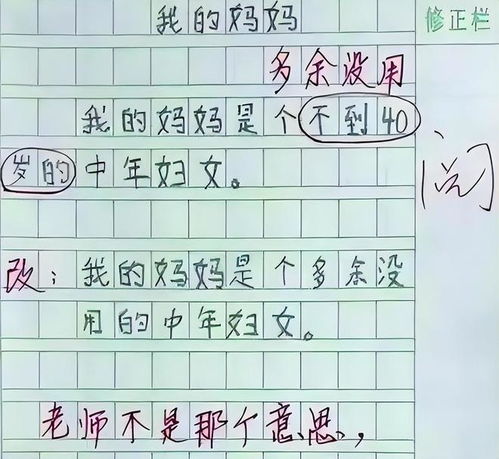 我的妈妈
修正栏
多余没用
我的妈妈是个不到40
岁的中年妇女。
阅
改:我的妈妈是个多余没
用的中年妇女。
老师不是那个意思,